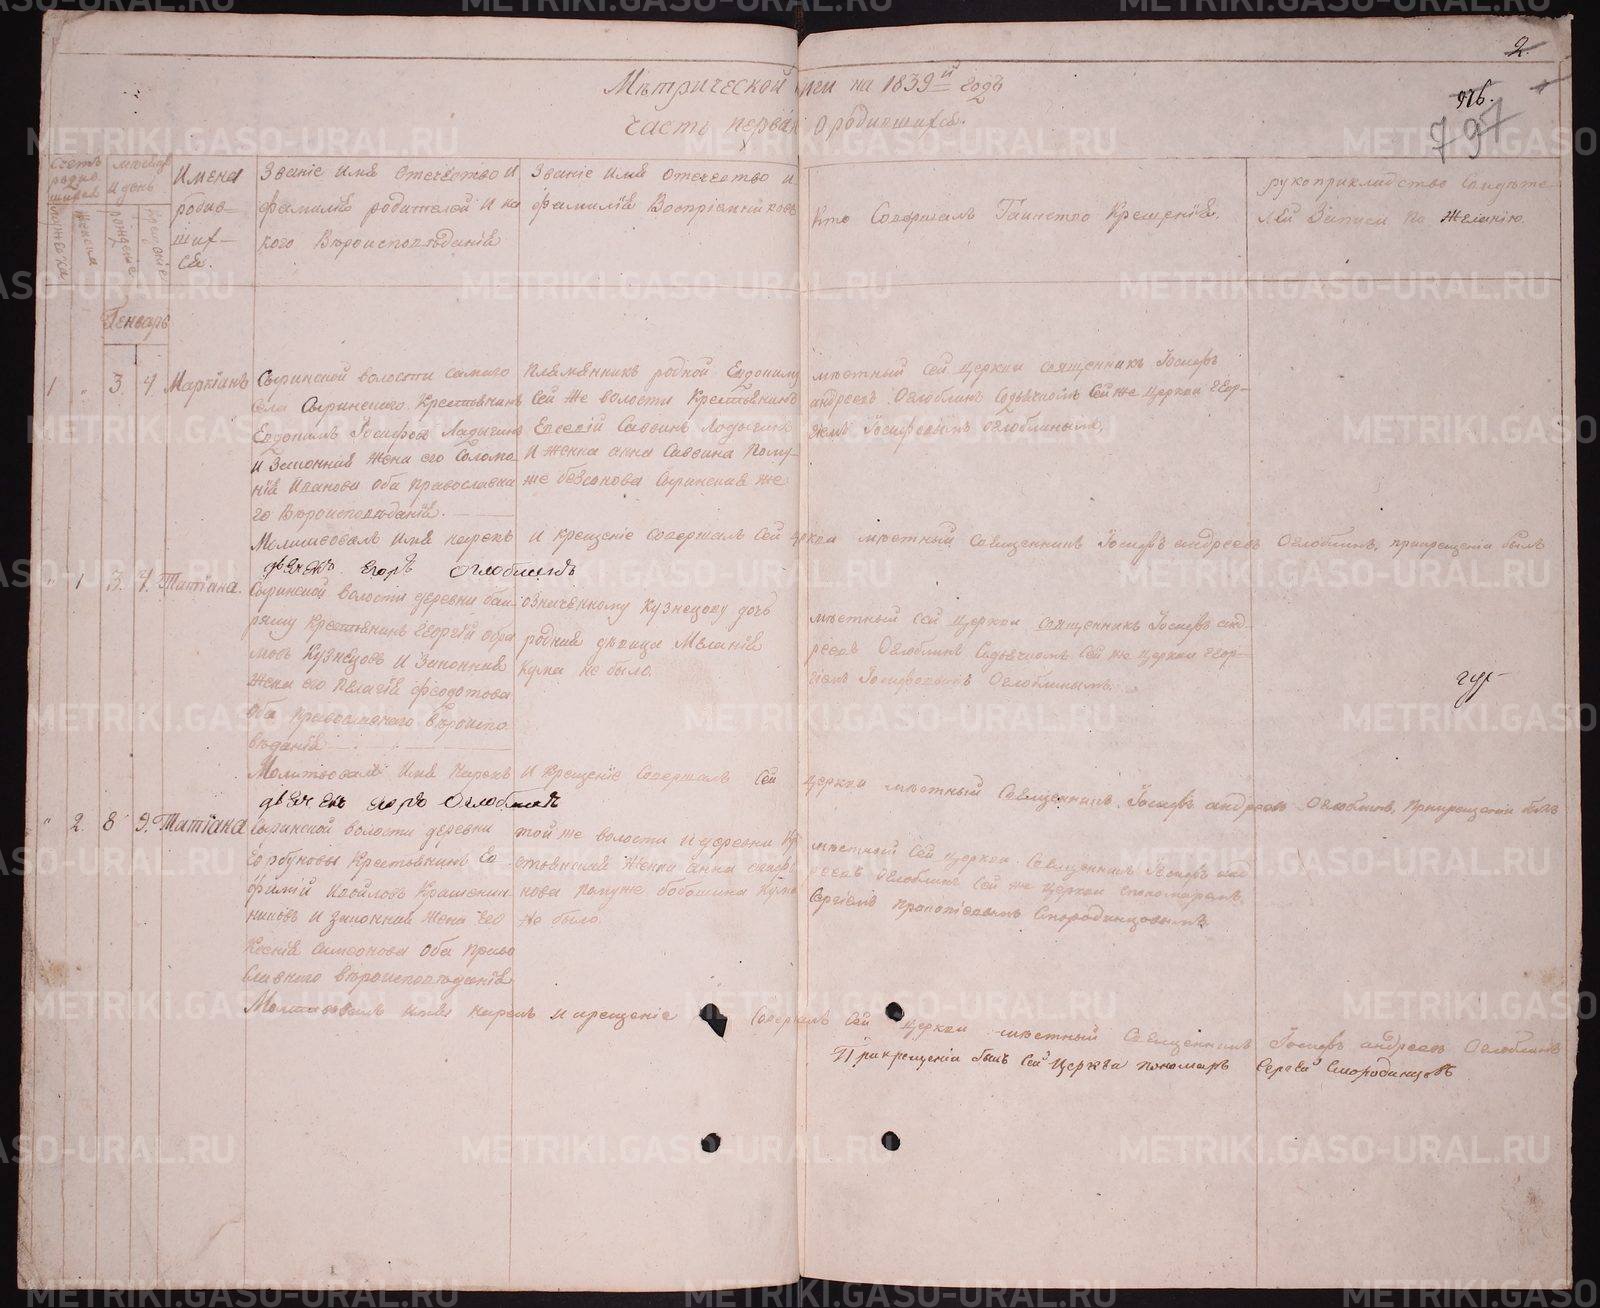 2.
Мѣтрической книги на 1839й Годъ
976.
797
Часть первая О родившихся.
Счетъ родив-шихся
мѣсяцъ и день
Имена родив-шихся.
Званіе Имя Отечество И фамилія родителей И ка-кого Вѣроисповѣданія
Званіе Имя Отечество и фамилія Воспріемниковъ
Кто Совершалъ Таинство Крещенія.
рукоприкладство Свидѣте-лей Записи по Желанію.
мужеска
женска
рожденіе
крещеніе
Генварь
1 " 3. 4 Маркіанъ
Сыринской волости самаго
села Сыринскаго Крестьянинъ
Евдокимъ Іосифовъ Ладыгинъ
И Законная жена его Соломо-
нія Иванова Оба православна
го Вѣроисповѣданія.
племянникъ родной Евдокиму
Сей же волости Крестьянинъ
Евсевій Саввинъ Ладыгинъ
И женка анна Саввина Пому-
же безсонова Сыринская же
мѣстный сей церкви священникъ Іосифъ
андреевъ Оглоблинъ Съдьячкомъ Сей же церкви Геор-
гіемъ Іосифовымъ Оглоблинымъ,
Молитвовалъ Имя нарекъ И крещеніе Совершалъ Сей церкви мѣстный Священникъ Іосифъ андреевъ Оглоблинъ, прикрещеніи былъ
дьячекъ Егоръ Оглоблинъ
" 1 3. 4. Татіана.
Сыринской волости деревни
Крестьянинъ Георгій
Кузнецовъ И Законная
Жена его Пелагія Федотова
Оба православнаго Вѣроиспо
вѣданія
означенному Кузнецову дочь
родная дѣвица Меланія
Кума не было.
мѣстный сей церкви священникъ Іосифъ анд-
реевъ Оглоблинъ Съдьячкомъ Сей же церкви Геор-
гіемъ Іосифовымъ Оглоблинымъ.
Молитвовалъ Имя Нарекъ И Крещеніе Совершалъ Сей церкви мѣстный Священникъ Іосифъ андреевъ Оглоблинъ, Прикрещеніи былъ
дьячекъ Егоръ Оглоблинъ
" 2. 8 9. Татіана
Сыринской волости деревни
Горбуновы Крестьянинъ
Крашенин-
никовъ И законная Жена Его
Ксенія Симеонова Оба право
славнаго вѣроисповѣданія
той же волости и деревни Кр
стьянская Женка Анна
помуже бобошина Кума
не было.
мѣстный Сей церкви Священникъ Іосифъ анд
реевъ Оглоблинъ Сей же церкви спономаремъ
Сергіемъ Смородинцовымъ
Молитвовалъ имя нарекъ и крещеніе Совершалъ Сей церкви мѣстный Священникъ Іосифъ андреевъ Оглоблинъ
Прикрещеніи былъ Сей Церкви пономарь Сергей Смородинцовъ